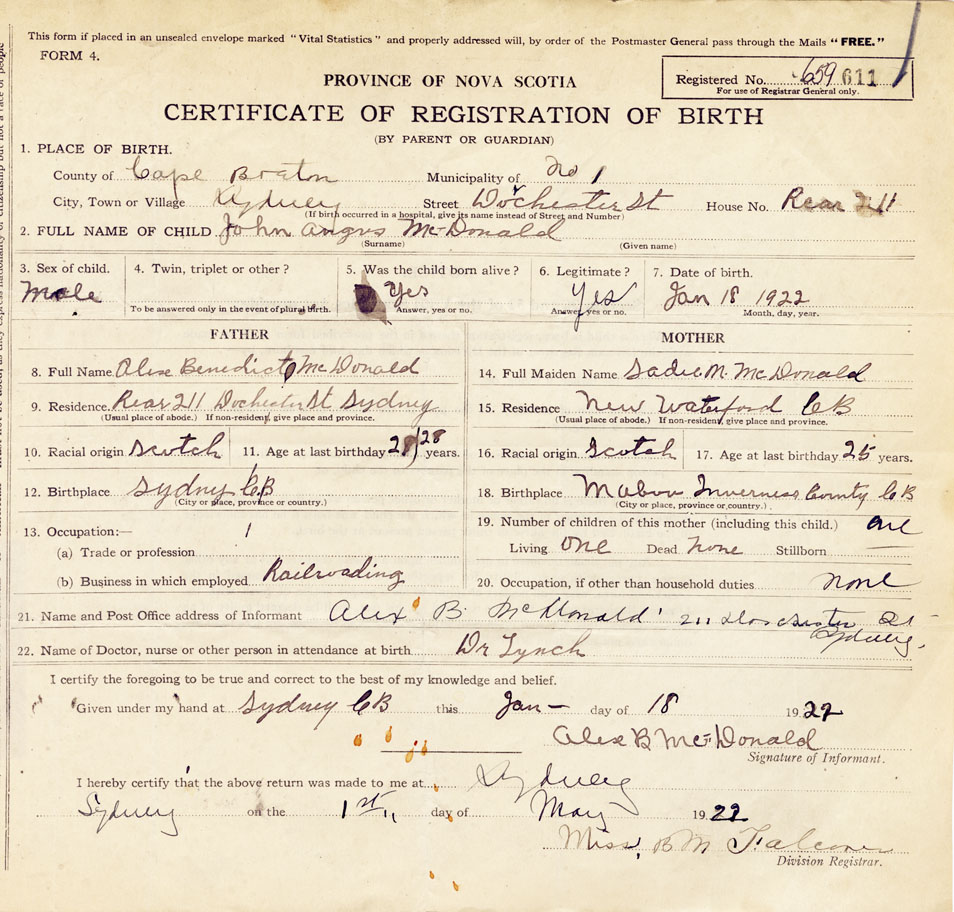 This form if placed in an unsealed envelope marked "Vital Statistics" and properly addressed will, by order of the Postmaster General pass through the Mails "FREE."
FORM 4.
Registered No. 659 611
For use of Registrar General only.
PROVINCE OF NOVA SCOTIA
CERTIFICATE OF REGISTRATION OF BIRTH
(BY PARENT OR GUARDIAN)
1. PLACE OF BIRTH.
County of Cape Breton Municipality of No 1
City, Town or Village Sydney Street Dorchester St House No. Rear 211
(If birth occurred in a hospital, give its name instead of Street and Number)
2. FULL NAME OF CHILD John Angus McDonald
(Surname) (Given name)
3. Sex of child. 4. Twin, triplet or other? 5. Was the child born alive? 6. Legitimate? 7. Date of birth.
Male Yes Yes Jan 18 1922
To be answered only in the event of plural birth. Answer, yes or no. Answer, yes or no. Month, day, year.
FATHER MOTHER
8. Full Name Alex Benedict McDonald 14. Full Maiden Name Sadie M. McDonald
9. Residence. Rear 211 Dochester St Sydney 15. Residence New Waterford CB
(Usual place of abode.) If non-resident, give place and province. (Usual place of abode.) If non-resident, give place and province.
10. Racial origin Scotch 11. Age at last birthday 28 28 years. 16. Racial origin Scotch 17. Age at last birthday 25 years.
12. Birthplace Sydney CB 18. Birthplace Mabou Inverness County CB
(City or place, province or country.) (City or place, province or country.)
13. Occupation:— 1 19. Number of children of this mother (including this child.) one
(a) Trade or profession Living One Dead None Stillborn —
(b) Business in which employed Railroading 20. Occupation, if other than household duties none
21. Name and Post Office address of Informant Alex B. McDonald 211 Dorchester St Sydney.
22. Name of Doctor, nurse or other person in attendance at birth Dr Lynch
I certify the foregoing to be true and correct to the best of my knowledge and belief.
Given under my hand at Sydney CB this Jan — day of 18 1922
Alex B McDonald
Signature of Informant.
I hereby certify that the above return was made to me at Sydney
Sydney on the 1st day of May 1922
Miss. B M Falconer
Division Registrar.